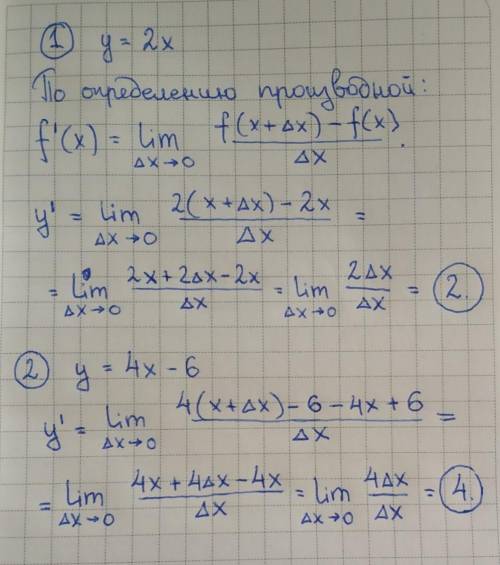 ① y = 2x
По определению производной:
f'(x) = lim Δx→0 (f(x+Δx) - f(x))/Δx.
y' = lim Δx→0 (2(x+Δx) - 2x)/Δx =
= lim Δx→0 (2x+2Δx-2x)/Δx = lim Δx→0 2Δx/Δx = 2.
② y = 4x - 6
y' = lim Δx→0 (4(x+Δx) - 6 - 4x + 6)/Δx =
= lim Δx→0 (4x+4Δx-4x)/Δx = lim Δx→0 4Δx/Δx = 4.